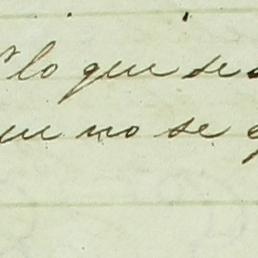 lo que se
no se